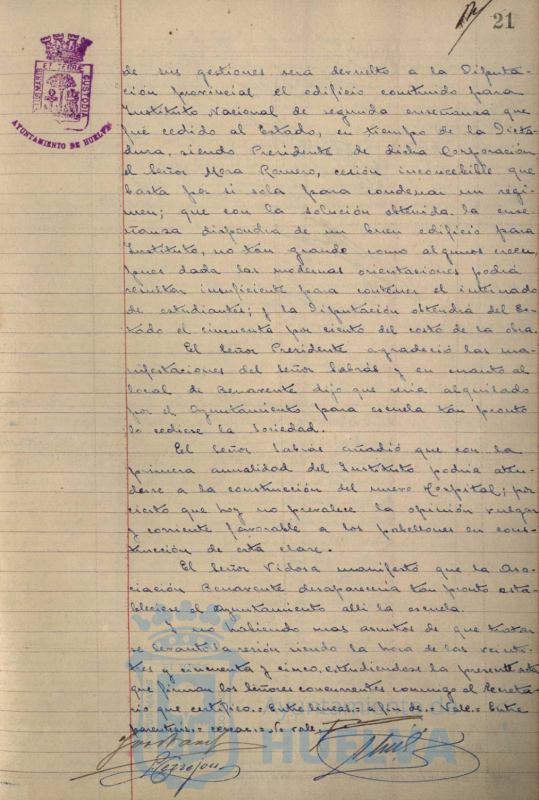 21
AYUNTAMIENTO DE HUELVA
de sus gestiones será devuelto a la Diputa-
ción provincial el edificio contruido para
Instituto Nacional de segunda enseñanza que
fué cedido al Estado, en tiempo de la Dicta-
dura, siendo Presidente de dicha Corporación
el Señor Mora Romero, cesión inconcebible que
basta por si sola para condenar un régi-
men; que con la solución obtenida la ense-
ñanza dispondrá de un buen edificio para
Instituto, no tan grande como algunos creen,
pues dada las modernas orientaciones podrá
resultar insuficiente para contener el internado
de estudiantes; y la Diputación obtendrá del Es-
tado el cincuenta por ciento del costo de la obra.
El Señor Presidente agradeció las ma-
nifestaciones del Señor Sabrás y en cuanto al
local de Benavente dijo que seria alquilado
por el Ayuntamiento para escuela tan pronto
lo cediese la Sociedad.
El Señor Sabrás añadió que con la
primera anualidad del Instituto podria aten-
derse a la construcción del nuevo Hospital; por
cierto que hoy no prevalece la opinión vulgar
y corriente favorable a los pabellones en cons-
trucción de esta clase.
El Señor Vidosa manifestó que la Aso-
ciación Benavente desapareria tan pronto esta-
bleciese el Ayuntamiento alli la escuela.
Y no habiendo mas asuntos de que tratar
se levantó la sesión siendo la hora de las veinti-
tres y cincuenta y cinco, extendiendose la presente acta
que firman los Señores concurrentes conmigo el Secreta-
rio que certifico.= Entre lineas = a fin de = Vale.= Entre
parentesis = = No vale.
HUELVA